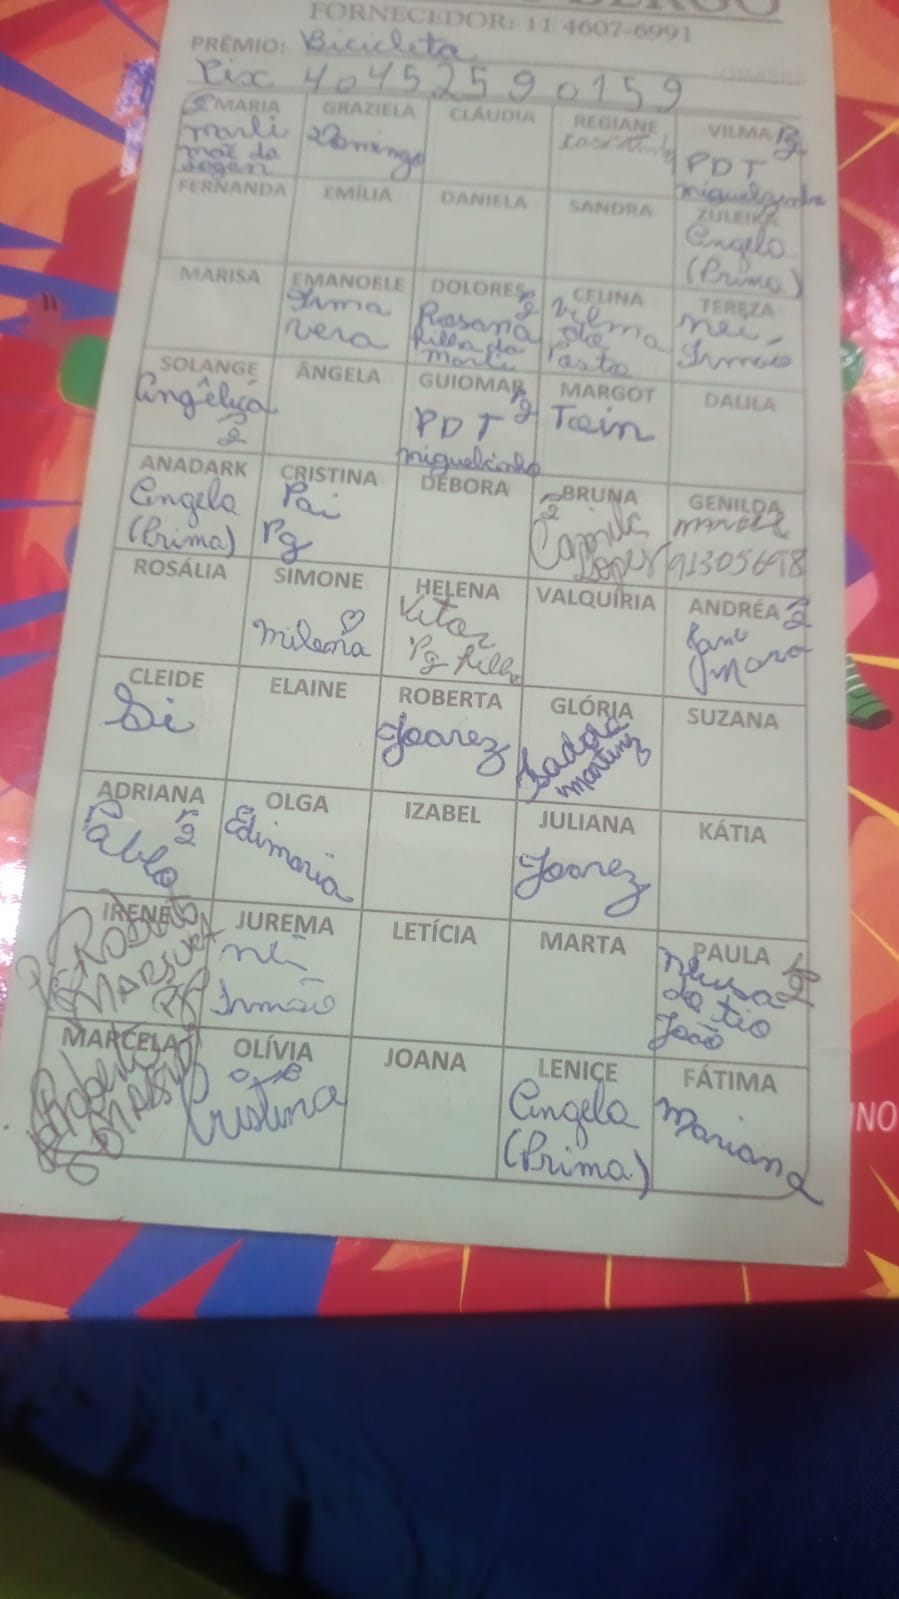 FORNECEDOR: 11 4607-6991
PRÊMIO: Bicicleta
Pix 40452590159
MARIA GRAZIELA CLÁUDIA REGIANE VILMA Pg
Marli Domingo PDT
mãe do miguelzinho
FERNANDA EMÍLIA DANIELA SANDRA ZULEIKA
Angela
(Prima)
MARISA EMANOELE DOLORES Pg CELINA TEREZA
Irma Rosana Vilma Nei
Vera filha da da Irmão
Marli Pasta
SOLANGE ÂNGELA GUIOMAR Pg MARGOT DALILA
Angélica PDT Tain
Pg miguelzinho
ANADARK CRISTINA DÉBORA BRUNA GENILDA
Angela Pai Pg Camila
(Prima) Pg Lopes 91305698
ROSÁLIA SIMONE HELENA VALQUÍRIA ANDRÉA Pg
Milena Vitor
Pg filho Mara
CLEIDE ELAINE ROBERTA GLÓRIA SUZANA
Si Joarez Isadora
Martinez
ADRIANA Pg OLGA IZABEL JULIANA KÁTIA
Pablo Edimaria Joarez
IRENE JUREMA LETÍCIA MARTA PAULA Pg
Roberto Nei Neusa
Irmão do tio
João
MARCELA OLÍVIA JOANA LENICE FÁTIMA
Roberto Cristina Angela Mariana
(Prima)